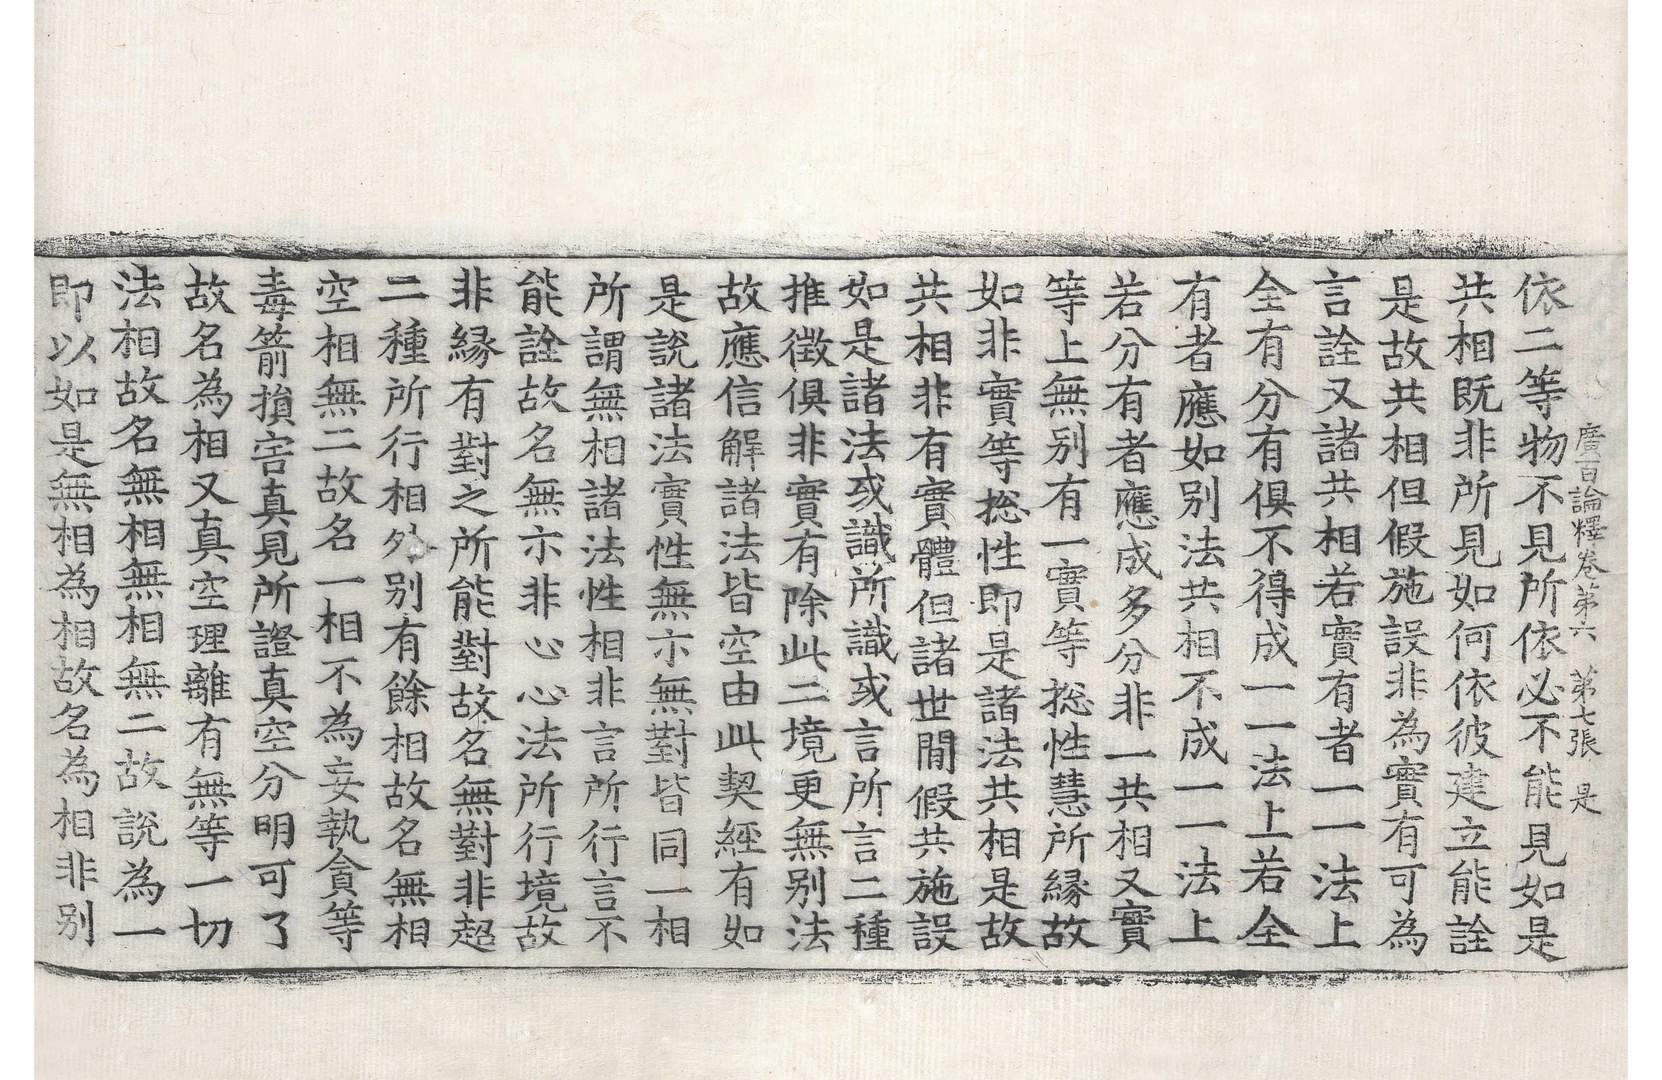 廣百論釋卷第六　第七張　是
依二等物不見所依必不能見如是
共相既非所見如何依彼建立能詮
是故共相但假施設非為實有可為
言詮又諸共相若實有者一一法上
全有分有俱不得成一一法上若全
有者應如別法共相不成一一法上
若分有者應成多分非一共相又實
等上無別有一實等揔性慧所緣故
如非實等揔性即是諸法共相是故
共相非有實體但諸世間假共施設
如是諸法或識所識或言所言二種
推徵俱非實有除此二境更無別法
故應信解諸法皆空由此契經有如
是說諸法實性無亦無對皆同一相
所謂無相諸法性相非言所行言不
能詮故名無亦非心心法所行境故
非緣有對之所能對故名無對非超
二種所行相外別有餘相故名無相
空相無二故名一相不為妄執貪等
毒箭損害真見所證真空分明可了
故名為相又真空理離有無等一切
法相故名無相無相無二故說為一
即以如是無相為相故名為相非別